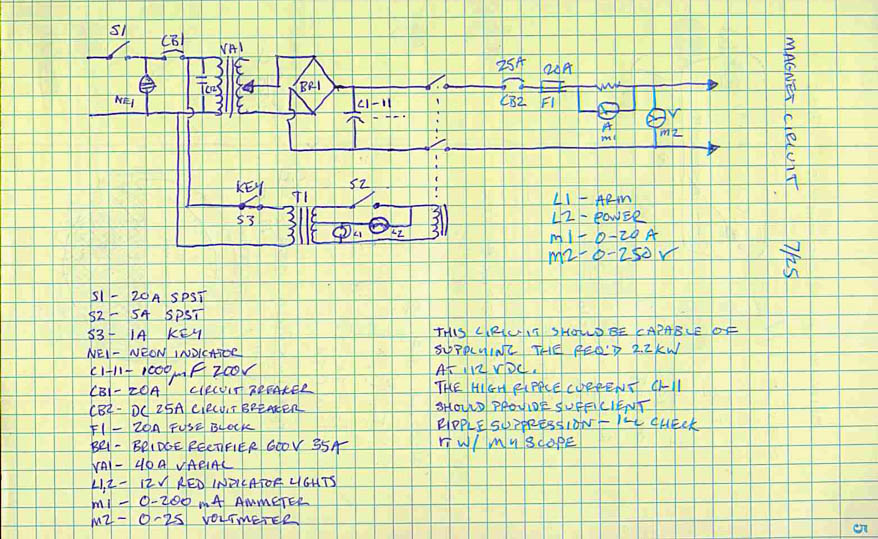 S1
CB1
VA1
NE1
C12
BR1
C1-11
25A
CB2
20A
F1
A
M1
V
M2
KEY
S3
T1
S2
L1
L2
MAGNET CIRCUIT 7/25
L1 - ARM
L2 - POWER
M1 - 0-20 A
M2 - 0-250 V
S1 - 20A SPST
S2 - 5A SPST
S3 - 1A KEY
NE1 - NEON INDICATOR
C1-11 - 1000 μF 200V
CB1 - 20A CIRCUIT BREAKER
CB2 - DC 25A CIRCUIT BREAKER
F1 - 20A FUSE BLOCK
BR1 - BRIDGE RECTIFIER 600V 35A
VA1 - 40A VARIAC
L1,2 - 12V RED INDICATOR LIGHTS
M1 - 0-200 mA AMMETER
M2 - 0-25 VOLTMETER
THIS CIRCUIT SHOULD BE CAPABLE OF
SUPPLYING THE REQ'D 2.2 KW
AT 112 VDC.
THE HIGH RIPPLE CURRENT C1-11
SHOULD PROVIDE SUFFICIENT
RIPPLE SUPPRESSION - I'LL CHECK
IT W/ MY SCOPE
5